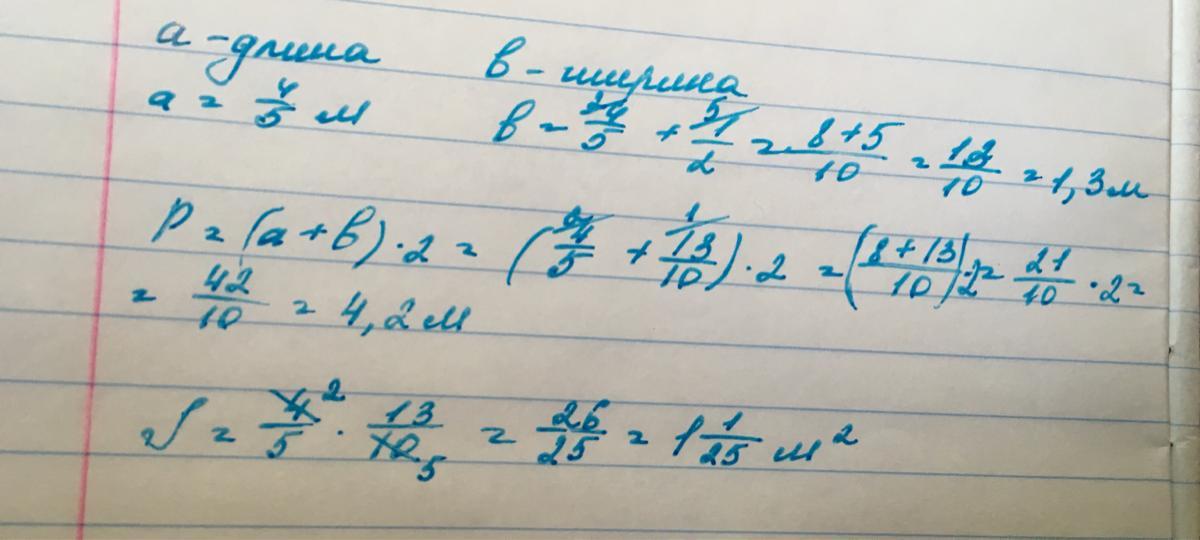 a - длина b - ширина
a = 4/5 м b = ²⁄4/5 + ⁵⁄1/2 = 8+5/10 = 13/10 = 1,3м
P = (a + b) · 2 = (²⁄4/5 + ¹⁄13/10) · 2 = (8 + 13/10) · 2 = 21/10 · 2 =
= 42/10 = 4,2 м
S = 4²/5 · 13/10₅ = 26/25 = 1 1/25 м²